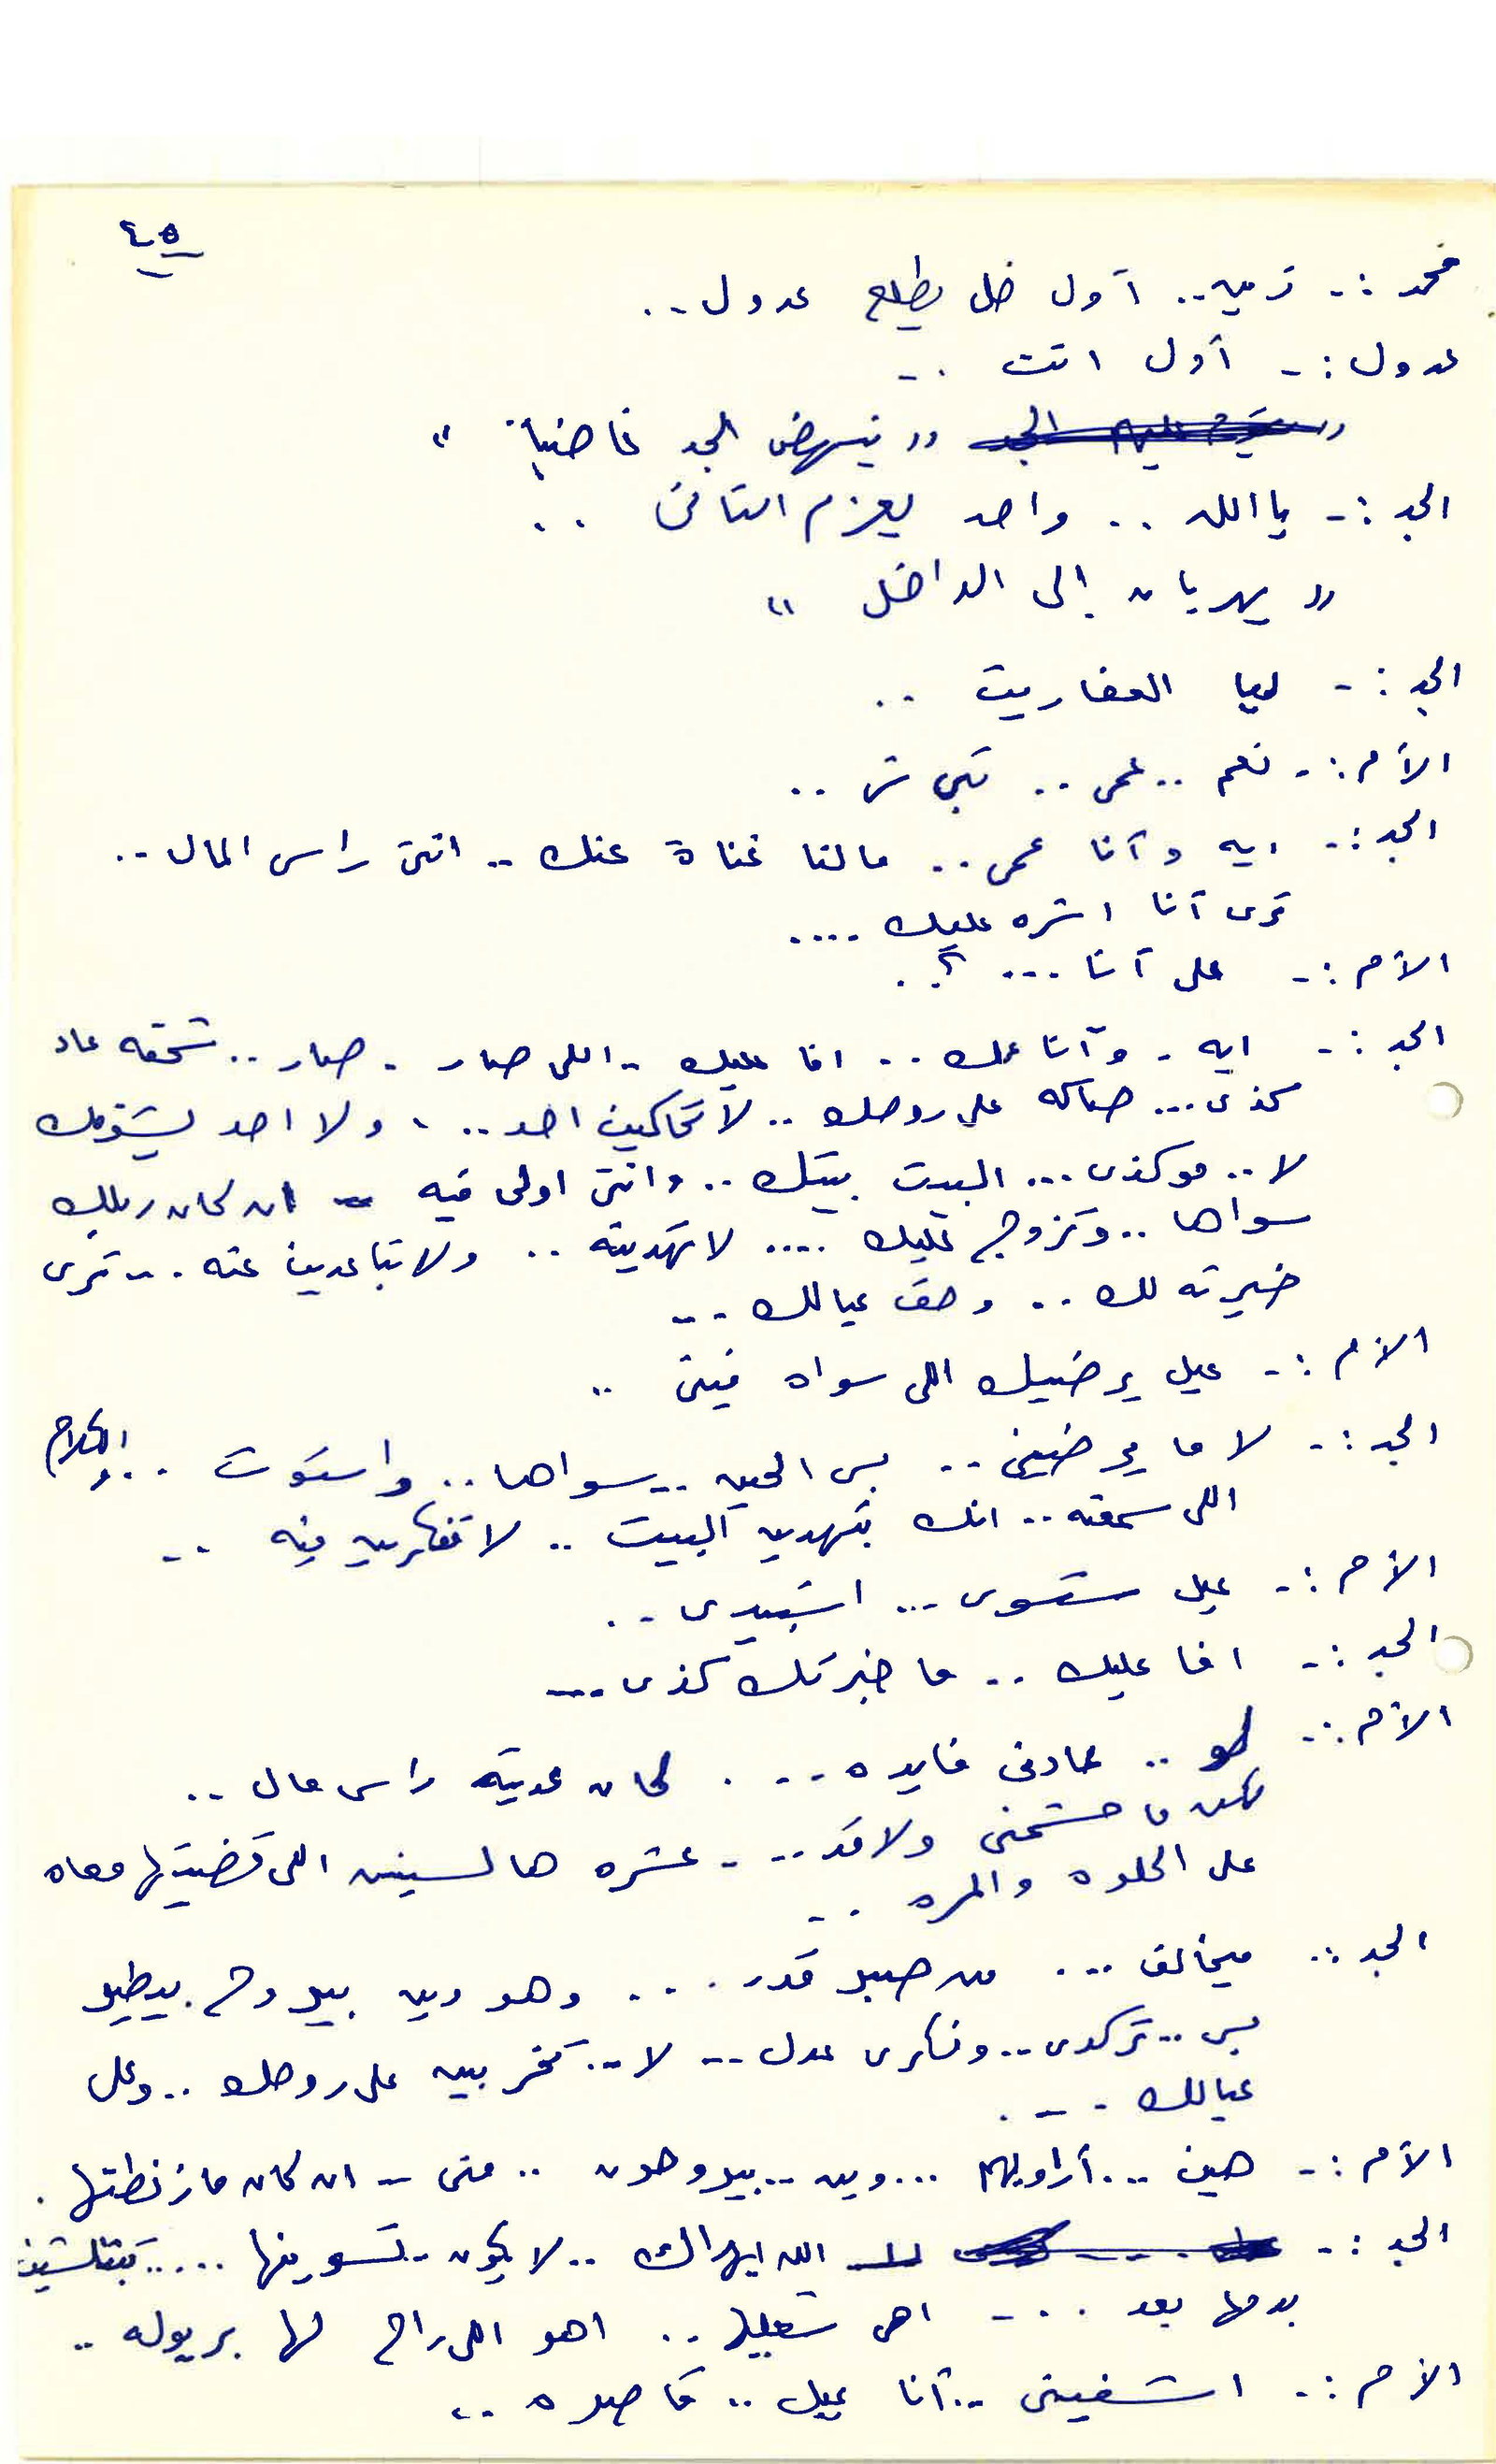 ٤٥
محمد :- زين .. آول خل يطلع عدول ..
عدول :- آول انت ..
" ينهض الجد غاضباً "
الجد :- ياالله .. واحد يعزم الثاني ..
" يهربان إلى الداخل "
الجد :- ليا العفاريت ..
الأم :- نعم .. عمي .. تبي شي ..
الجد :- ايه وآنا عمي .. مالنا غناة عنك .. انتي راس المال ..
ترى آنا اشره عليك ....
الأم :- على آنا ... ؟ .
الجد :- ايه - وآنا عمك .. افا عليك .. اللي صار - صار .. شحقه عاد
كذي ... صاكه على روحك .. لا تحاكين احد .. ، ولا احد يشوفك
لا .. مو كذي ... البيت بيتك .. وانتي اولى فيه - ان كان ريلك
سواها .. وتزوج عليك .... لا تهدينه .. ولا تباعدين عنه ... ترى
خيرته لك .. وحق عيالك ..
الأم :- عيل يرضيك اللي سواه فيني ..
الجد :- لا ما يرضيني .. بس الحين .. سواها .. واستوت .. والكلام
اللي سمعته .. انك بتهدين البيت .. لا تفكرين فيه ..
الأم :- عيل شسوي ... اشبيدي ..
الجد :- افا عليك .. ما خبرتك كذي ...
الأم :- لو .. عادني فايده ... لكان عديته راس مال ..
لكن ما حشمني ولا قدر .. - عشره هالسنين اللي قضيتها معاه
على الحلوه والمره ..
الجد :- ميخالف ... من صبر قدر ... وهو وين بيروح . بيطيح
بس .. تركدي .. وفكري عدل .. لا .. تخربين على روحك .. وعلى
عيالك ...
الأم :- هين ... أراويهم ... وين .. بيروحون .. مني - ان كان ما زنطتها .
الجد :- الله ايهداك .. لا يكون .. تسوينها .....
بدمها بعد ... اهي شعليها .. اهو اللي راح لها بريوله ..
الأم :- اشفيني .. آنا عيل .. قاصره ..